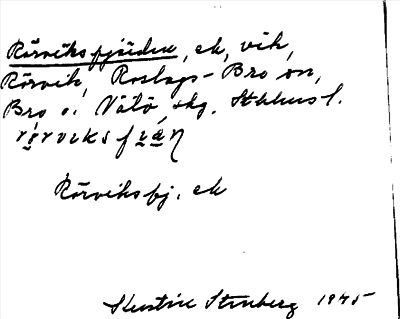 Rörviksfjärden, ek, vik,
Rörvik, Roslags-Bro sn,
Bro o. Vätö skg. Sthlms l.
rörviksfjän
Rörviksfj. ek
Kerstin Stenberg 1945